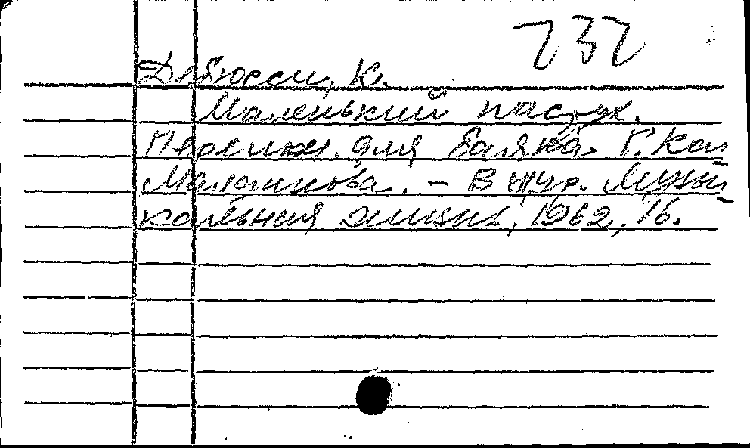 232
Дебюсси, К.
Маленький пастух.
Перелож. для баяна Г.
– В жур. Музы
кальная жизнь, 1962, 16.